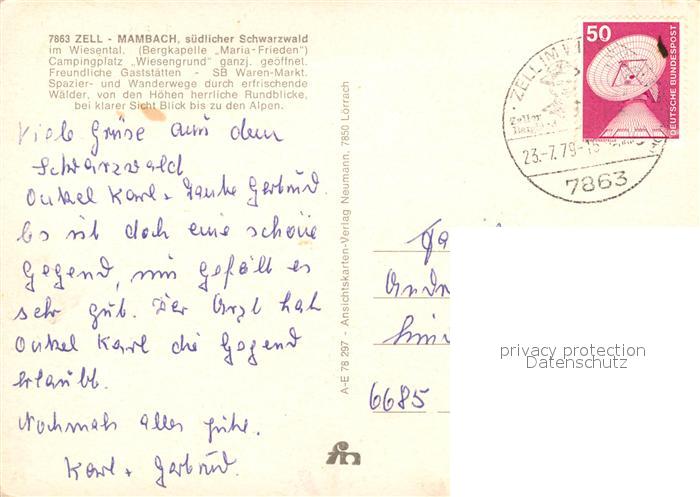 7863 ZELL - MAMBACH, südlicher Schwarzwald
im Wiesental. (Bergkapelle „Maria-Frieden")
Campingplatz „Wiesengrund" ganzj. geöffnet.
Freundliche Gaststätten - SB Waren-Markt.
Spazier- und Wanderwege durch erfrischende
Wälder, von den Höhen herrliche Rundblicke,
bei klarer Sicht Blick bis zu den Alpen.
Viele Grüse aus dem
Schwarzwald
Onkel Karl + Tante Gertrud.
Es ist doch eine schöne
Gegend, mir gefällt es
sehr gut. Der Arzt hat
Onkel Karl die Gegend
erlaubt.
Nochmals alles gute.
Karl + Gertrud.
A-E 78 297 - Ansichtskarten-Verlag Neumann, 7850 Lörrach
fn
50
DEUTSCHE BUNDESPOST
ZELL IM WI
Zeller
23.-7.79-15
7863
Fa
Andr
6685
privacy protection
Datenschutz